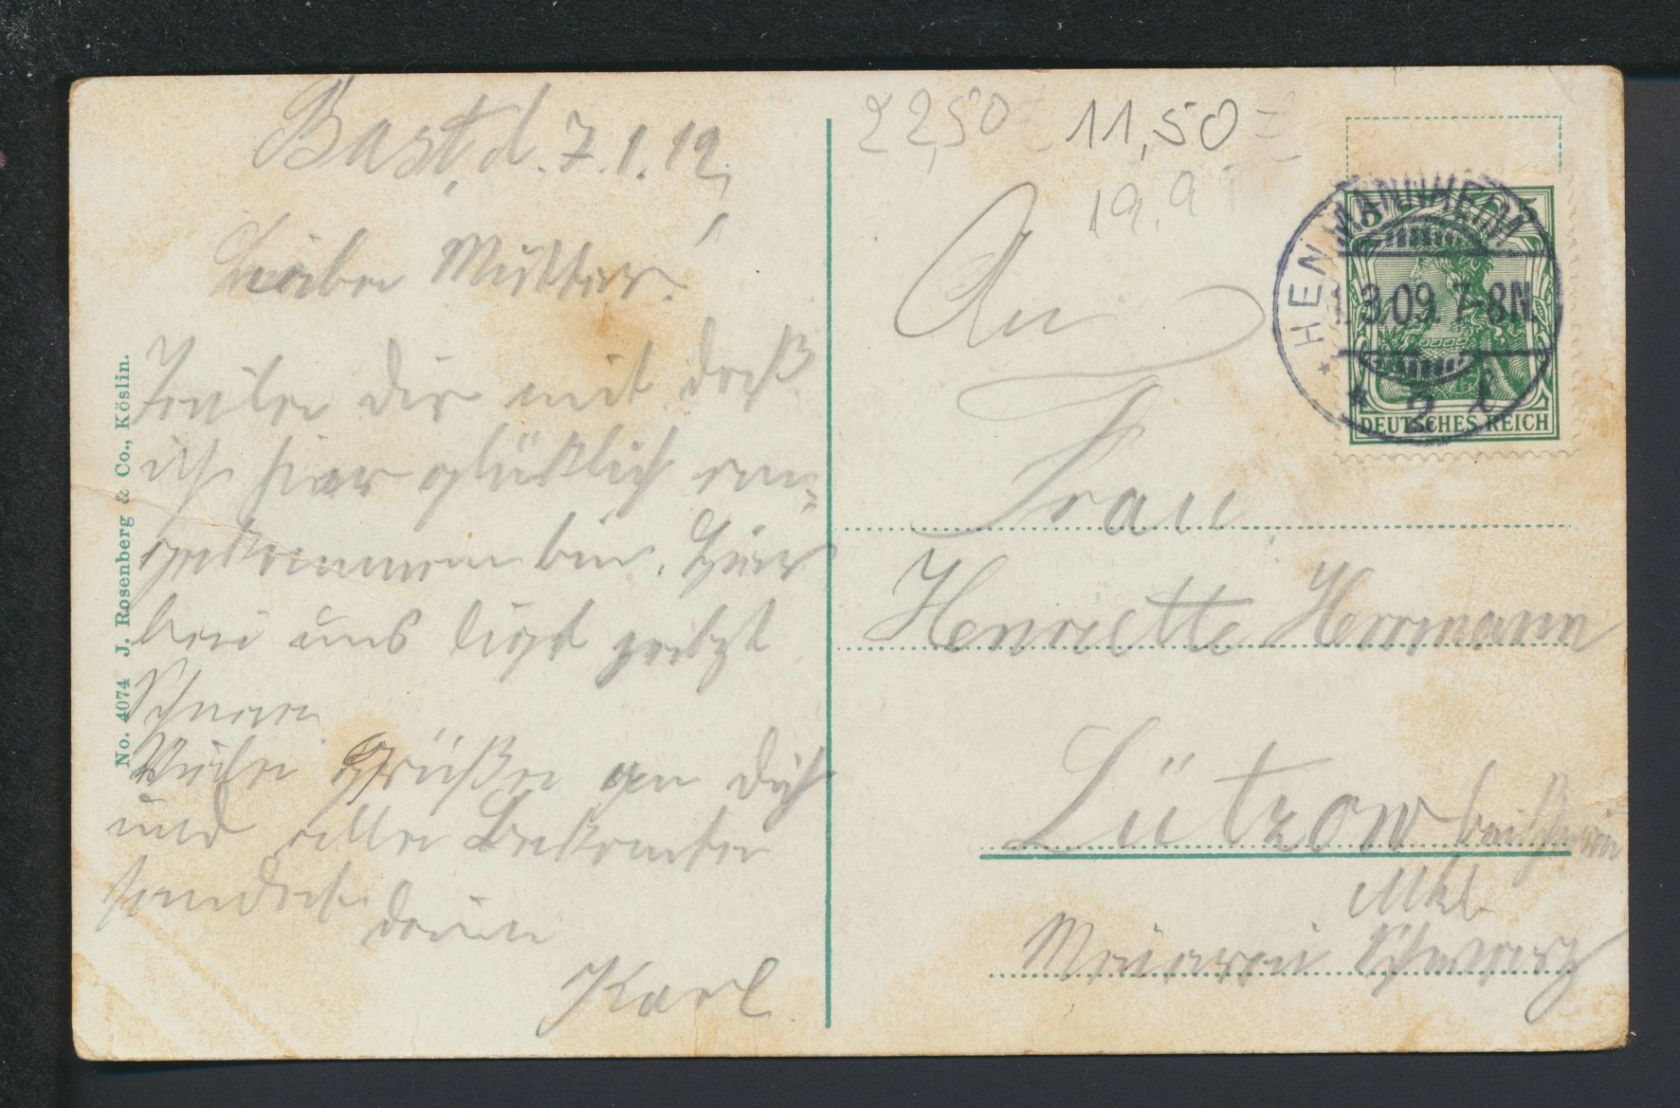 Bast, d. 7.1.12,
Liebe Mutter!
Teile dir mit daß
ich hier glücklich an=
gekommen bin. Hier
bei uns ligt jetzt
Schnee
Viele Grüße an dich
und alle Bekannten
sendet
dein
Karl
No. 4074 J. Rosenberg & Co., Köslin.
22,50 11,50 =
19,9
An
Frau
Henriette Herrmann
Lützow bei Schwerin
Mkl.
Meierei Schwarz
MANNHEIM
3.09. 7-8N.
2
DEUTSCHES REICH